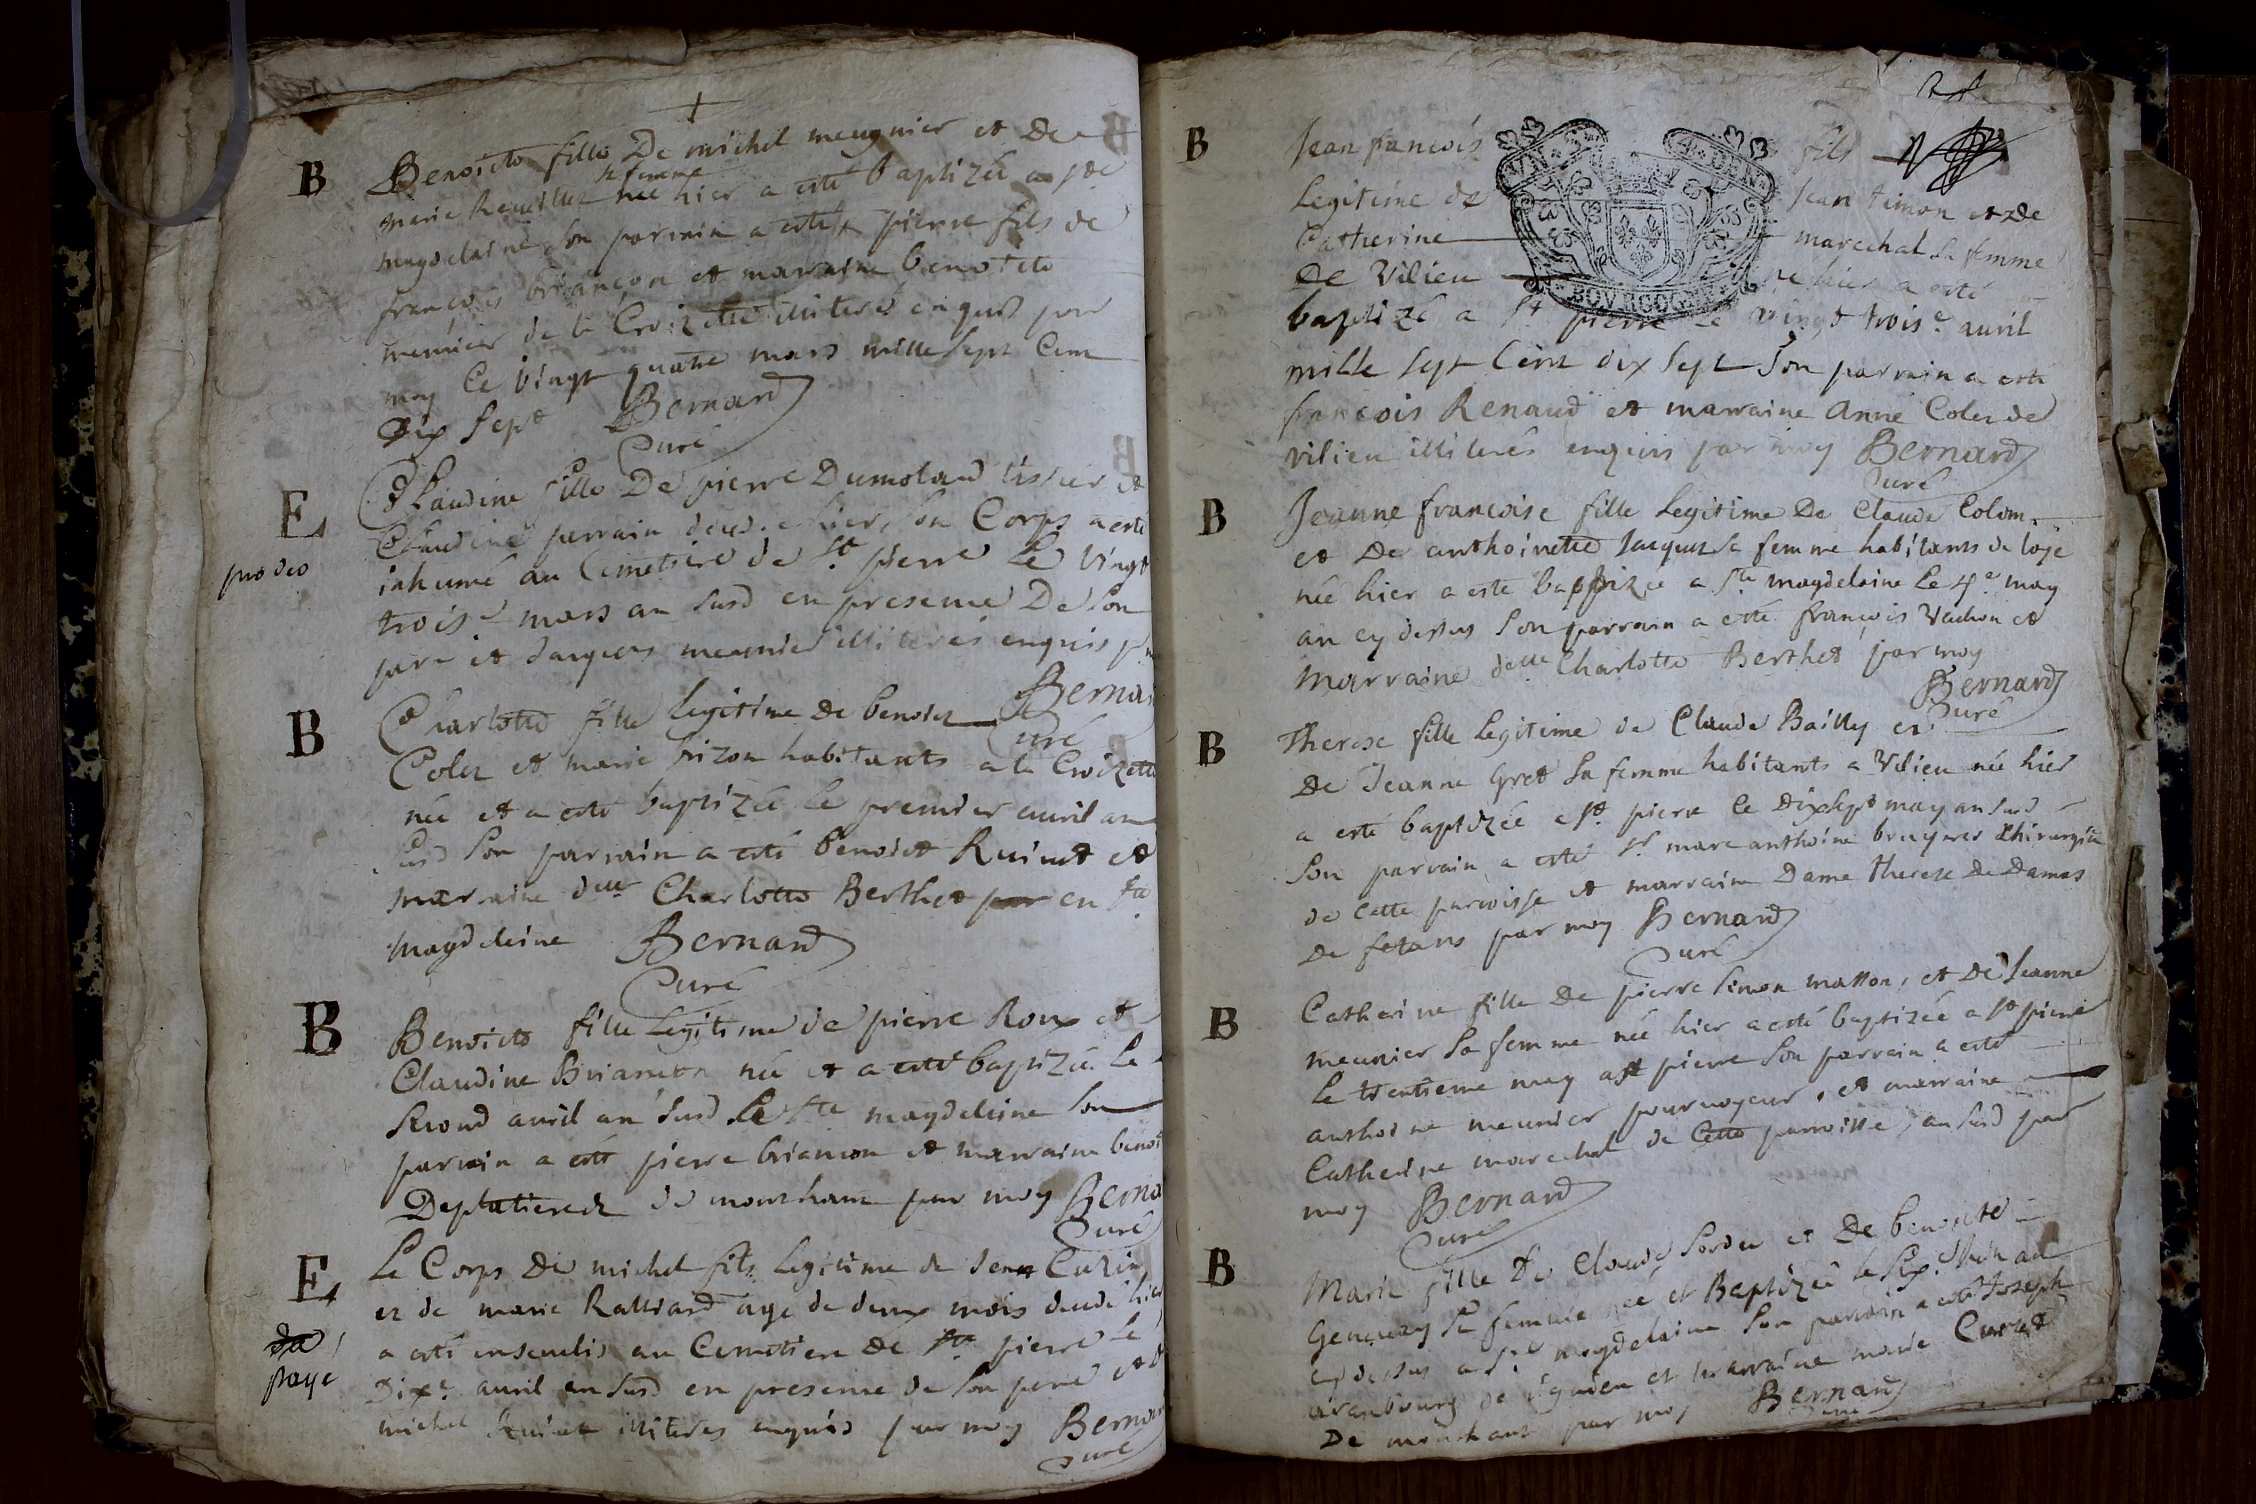 B
Benoicte fille De michel meugnier et De
marie Revillet sa femme née hier a esté baptizée a ste
magdelaine Son parrain a esté pierre fils de
françois briançon et marraine benoicte
meunier de la Croizette illiterés enquis par
moy Ce vingt quatre mars mille Sept Cent
Dix Sept Bernard
Curé
E
pro deo
Claudine fille De pierre Dumolard tissier et
Claudine perrain deced.e hier, Son Corps a esté
inhumé au Cimetiere de St pierre Le vingt
trois.e mars an susd en presence De Son
pere et Jacques meunier illiterés enquis p
Bernar
Curé
B
Charlotte fille Legitime de benoict
Colet et marie frizon habitants a la Croizette
née et a esté baptizée le premier avril an
susd Son parrain a esté benoict Ruinet et
marraine dlle Charlotte Berthet par en Ste
Magdeleine Bernard
Curé
B
Benoicte fille Legitime de pierre Roux et
Claudine Brianson née et a esté baptizée Le
Second avril an susd Le Ste magdeleine Son
parrain a esté pierre briancon et marraine benoi
Deplatieres de monthant par moy Berna
Curé
E
da
paye
Le Corps De michel fils Legitime de Jean Curin
et de marie Ralliard age de deux mois decedé hier
a esté enseveli au Cemetiere De St pierre Le
Dix.e avril an susd en presence de Son pere et d
michel Ruinet illiteres enquis par moy Bernar
Curé
B
Jean francois fils
Legitime de Jean timon et De
Catherine marechal Sa femme
De Vilieu né hier a esté
baptizé a St pierre Le vingt trois.e avril
mille Sept Cent dix Sept Son parrain a esté
françois Renaud et marraine Anne Colet de
vilieu illiterés enquis par moy Bernard
Curé
B
Jeanne francoise fille Legitime De Claude Colom.
et De anthoinette Jacquet Sa femme habitants de loye
née hier a esté baptizée a Ste magdelaine Le 4e may
an cy dessus Son parrain a esté françois Vachon et
Marraine dlle Charlotte Berthet par moy
Bernard
Curé
B
Therese fille Legitime de Claude Bailly et
De Jeanne Gret Sa femme habitants a Vilieu née hier
a esté baptizée a St pierre Le Dixsept may an susd
Son parrain a esté Sr marc anthoine bruyeres Chirurgien
de Cette paroisse et marraine Dame Therese De Damas
De fetans par moy Bernard
Curé
B
Catherine fille De pierre Simon masson, et De Jeanne
meunier Sa femme née hier a esté baptizée a St pierre
Le trentieme may a St pierre Son parrain a esté
anthoine meunier pourvoyeur, et marraine
Catherine marechal de Cette parroisse, an susd par
moy Bernard
Curé
B
Marie fille De Claude Sordet et De benoicte
Genevay Sa femme née et Baptizée le Six Juin an
cy dessus a Ste magdelaine Son parrain a esté Joseph
et Marraine marie Curet
De monthant par moy Bernard
Curé
BOVRGOGNE